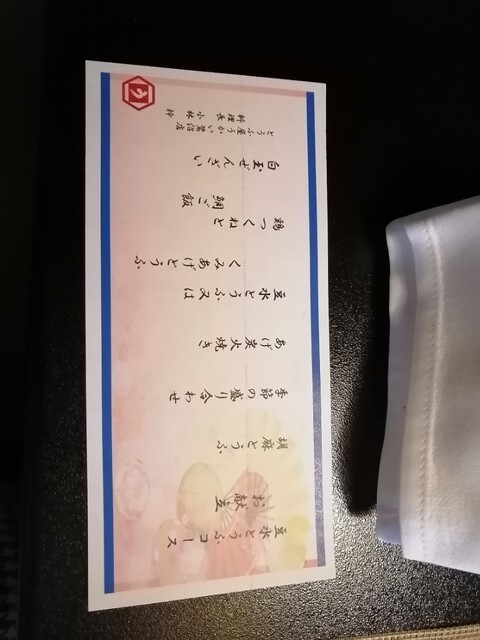 豆水とうふコース
お献立
胡麻とうふ
季節の盛り合わせ
あげ炭火焼き
豆水とうふ又は
くみあげとうふ
鶏つくねと
鯛ご飯
白玉ぜんざい
とうふ屋うかい鷺沼店
料理長 小林 幹
う